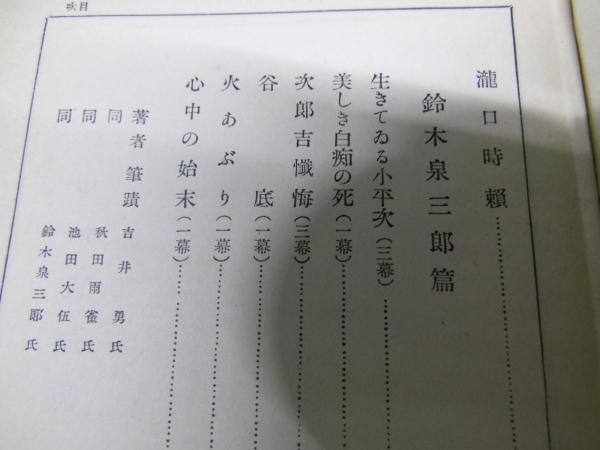 目次
瀧口時頼
鈴木泉三郎篇
生きてゐる小平次(三幕)
美しき白痴の死(一幕)
次郎吉懺悔(三幕)
谷底(一幕)
火あぶり(一幕)
心中の始末(一幕)
著者筆蹟 吉井勇氏
同 秋田雨雀氏
同 池田大伍氏
同 鈴木泉三郎氏